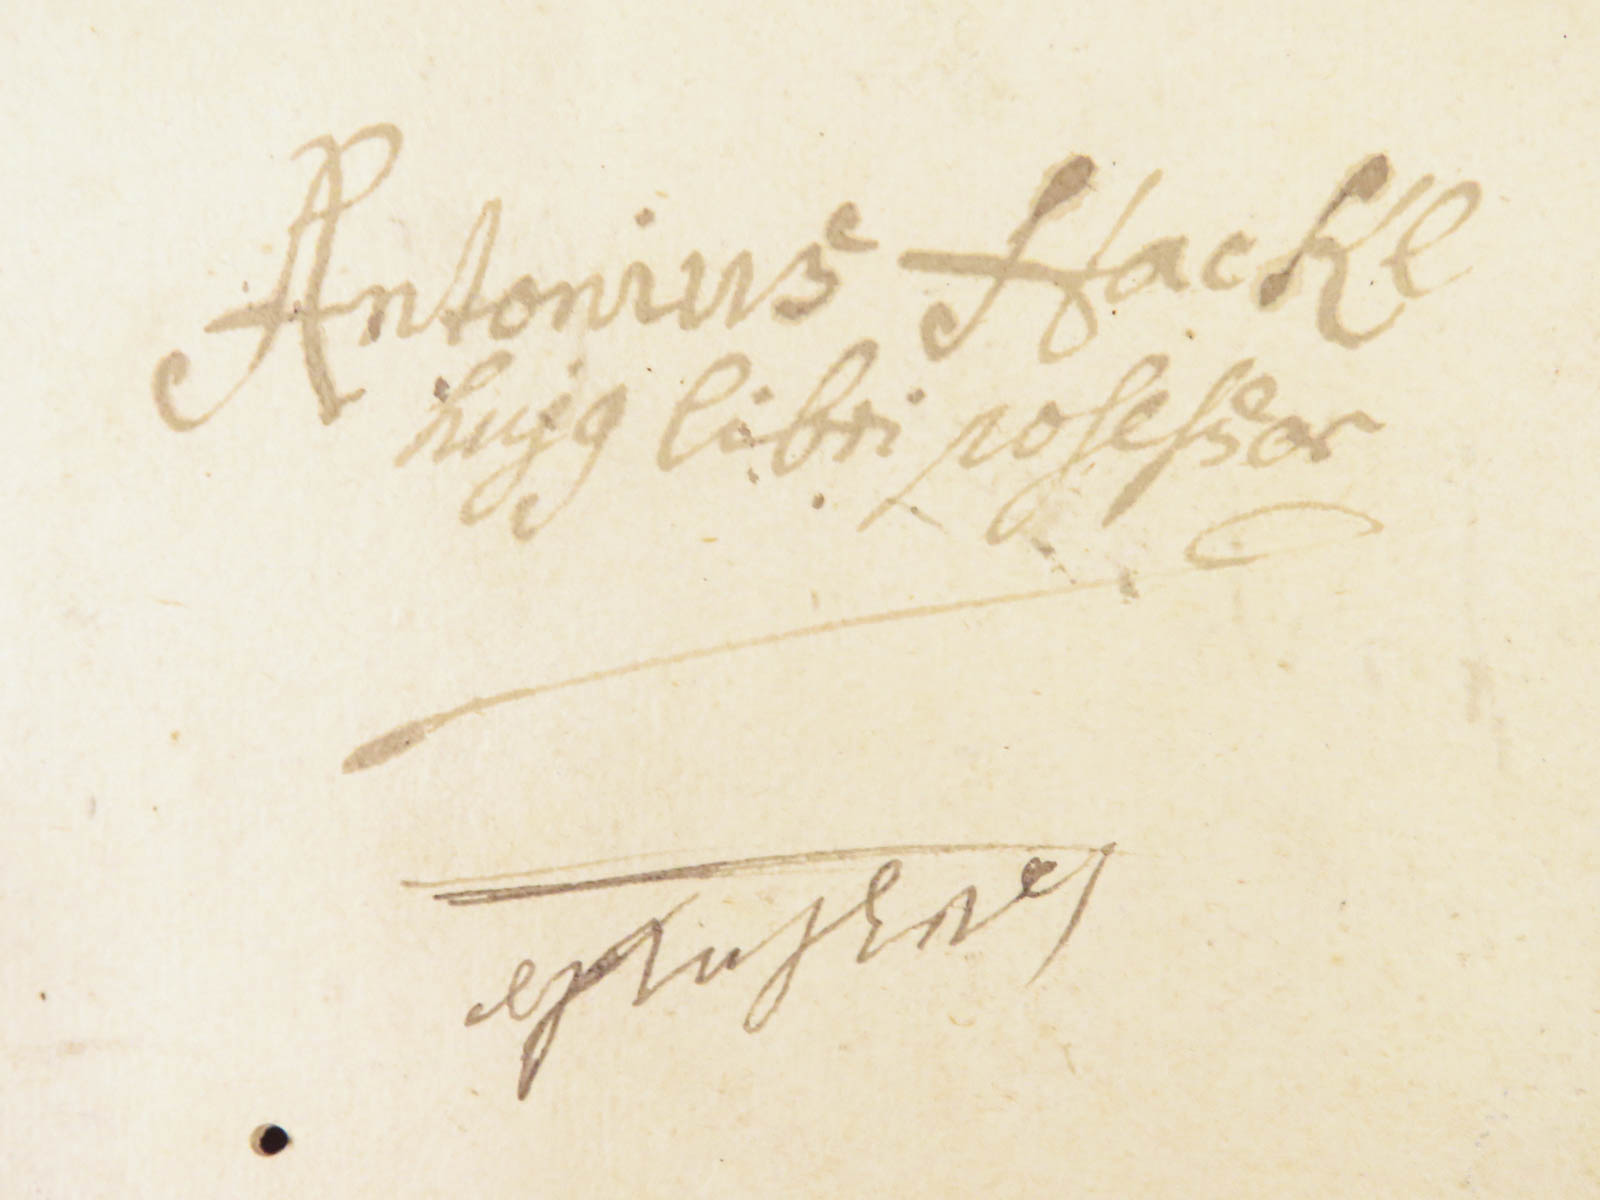 Antonius Hackl
hujꝯ libri posessor